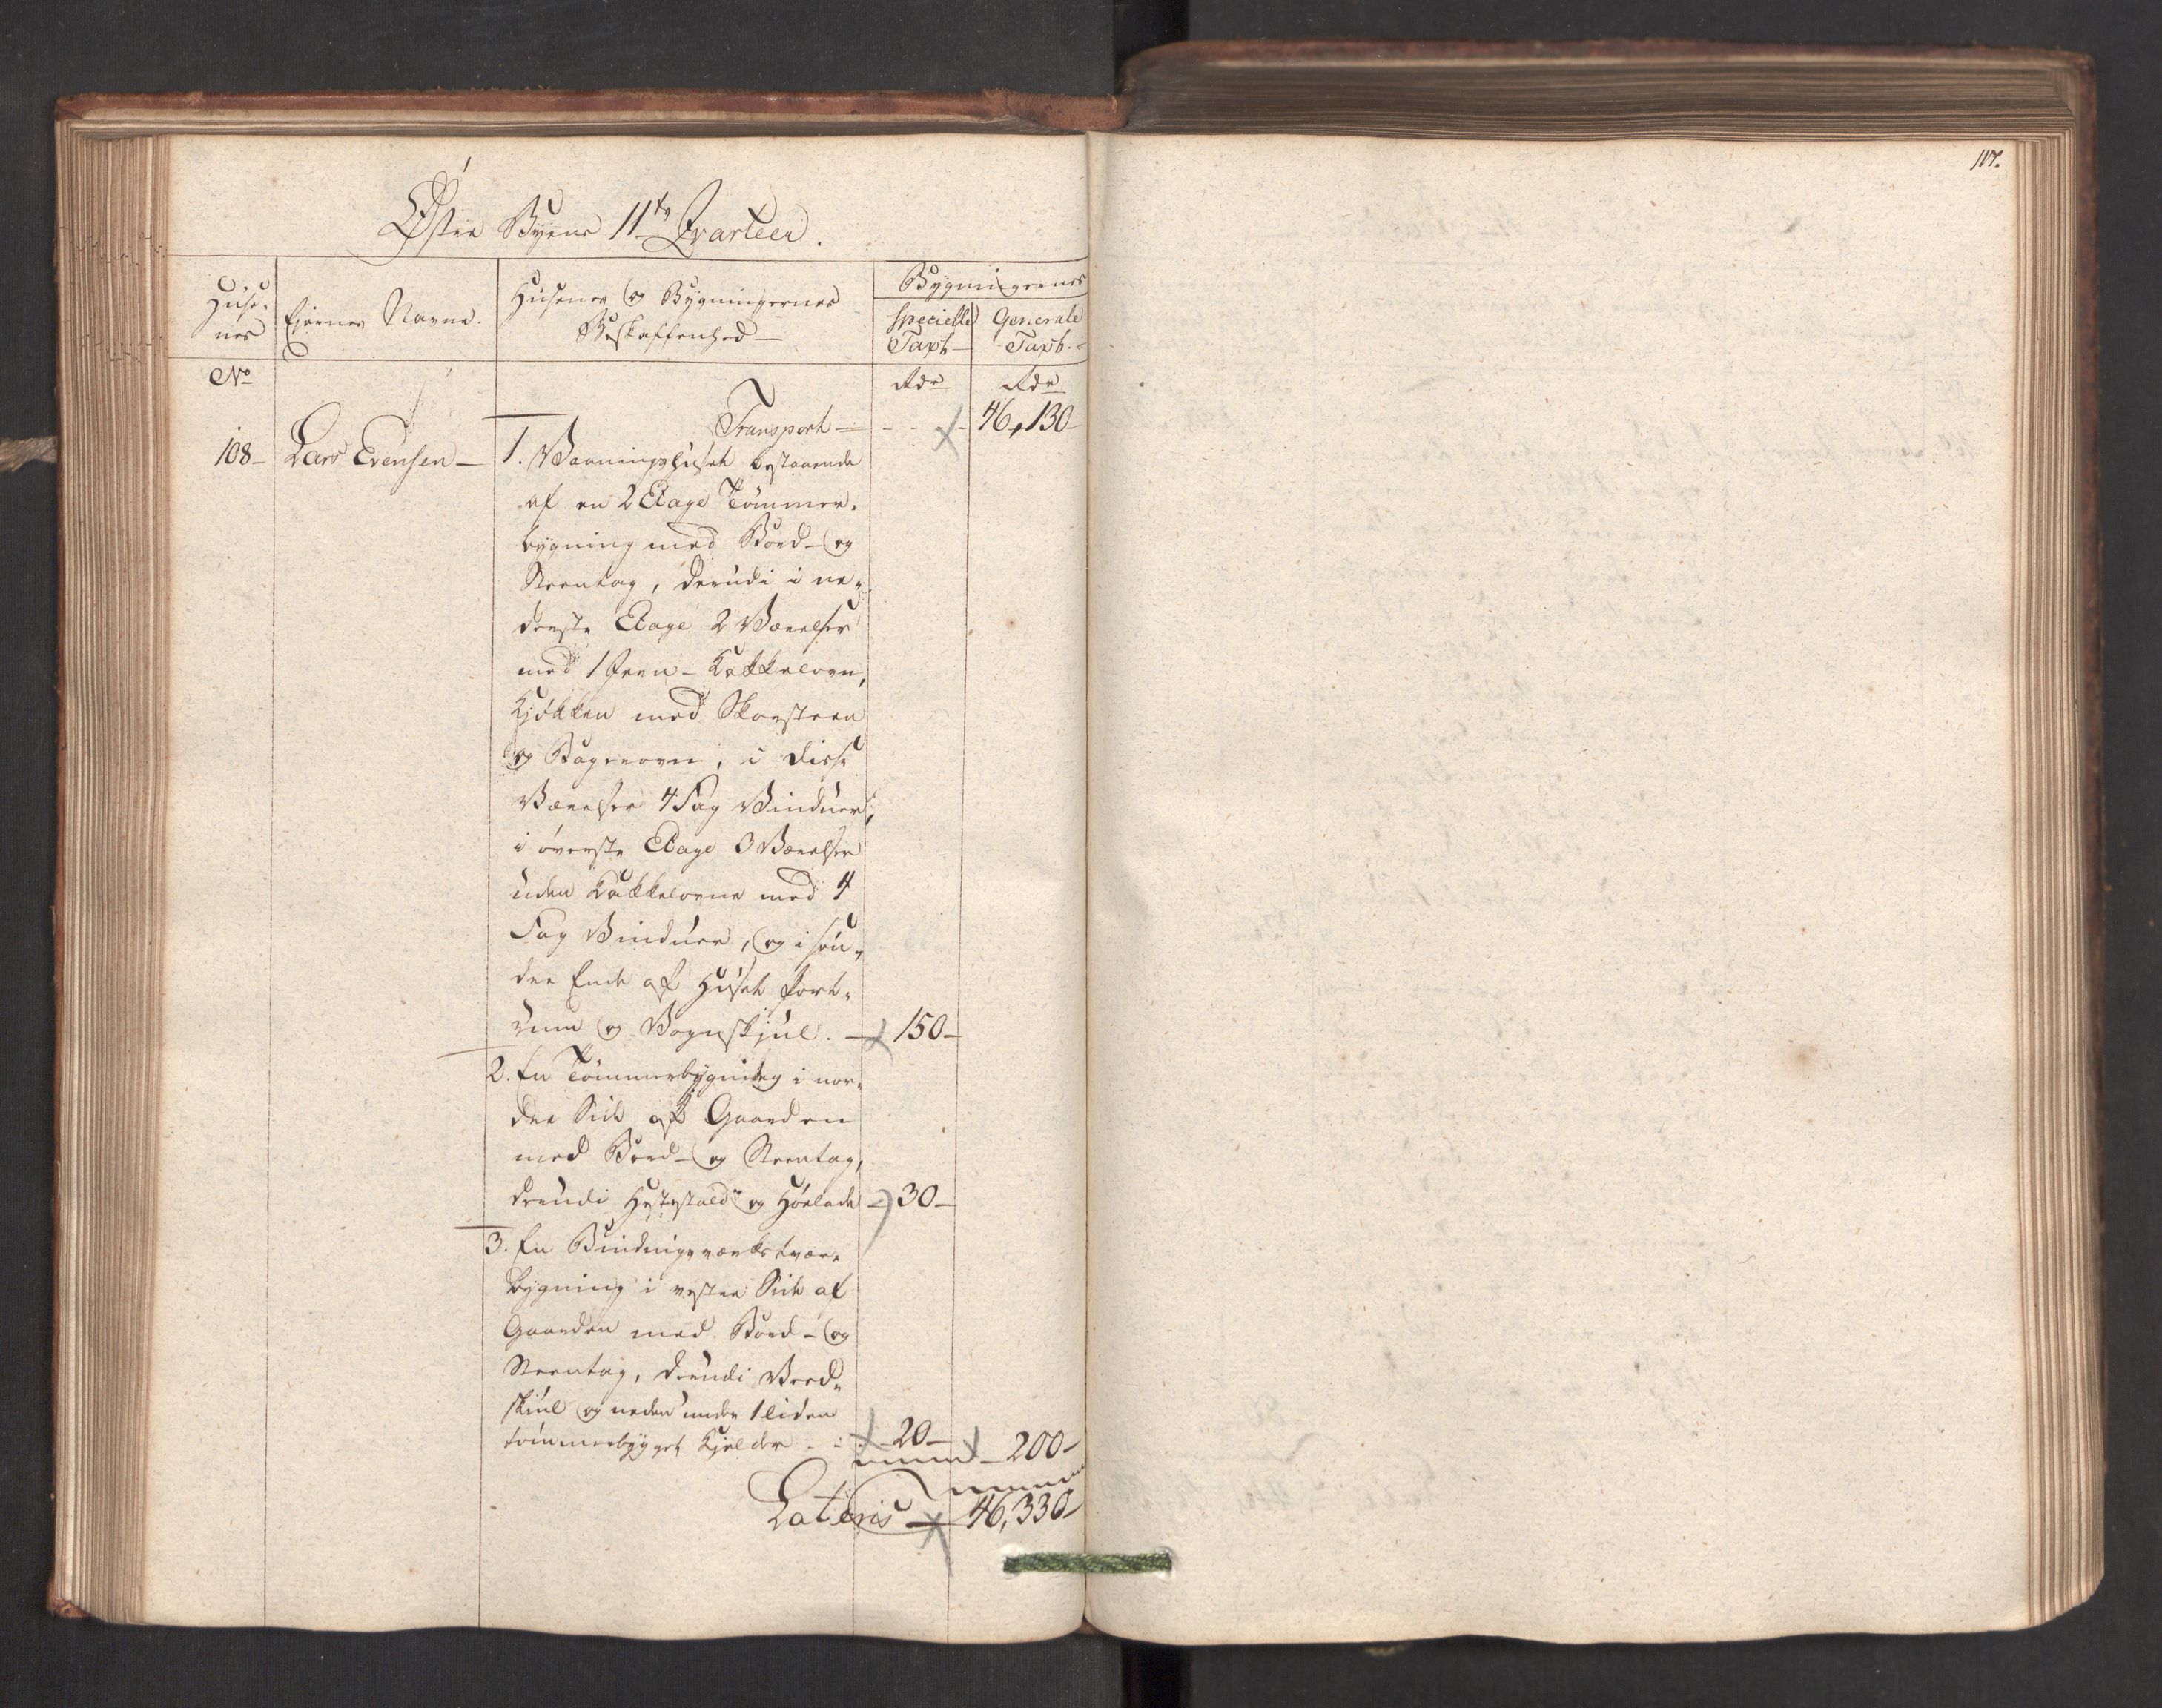 117.
Østre Byens 11te Qvarteer.
Huse-
nes
Eiernes Navne.
Husenes og Bygningernes
Beskaffenhed —
Bygningernes
Specielle
Taxt —
Generale
Taxt. -
No
Rdr
Rdr
Transport — - - 46,130 -
108 - Lars Evensen — 1. Vaaningshuset bestaaende
af en 2 Etage Tømmer-
bygning med Bord- og
Steentag, derudi i ne-
derste Etage 2 Værelser
med 1 Jern-Kakkelovn,
Kjøkken med Skorsteen
og Bagerovn, i disse
Værelser 4 Fag Vinduer,
i øverste Etage 3 Værelser
uden Kakkelovne med 4
Fag Vinduer, og i søn-
dre Ende af Huset Port-
rum og Vognskjul. — 150 —
2. En Tømmerbygning i nor-
dre Side af Gaarden
med Bord- og Steentag,
derudi Hestestald og Høelade — 30 —
3. En Bindingsværks tvær-
bygning i vestre Side af
Gaarden med Bord- og
Steentag, derudi Ved-
skiul og neden under 1 liden
tømmerbygget Kjelder - - 20 — 200 -
Lateris — 46,330 -